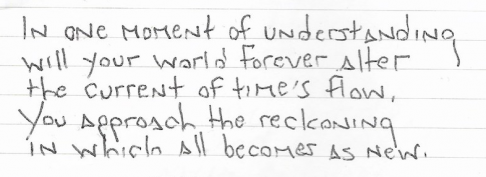 In one moment of understanding
will your world forever alter
the current of time's flow,
You approach the reckoning
in which all becomes as new.